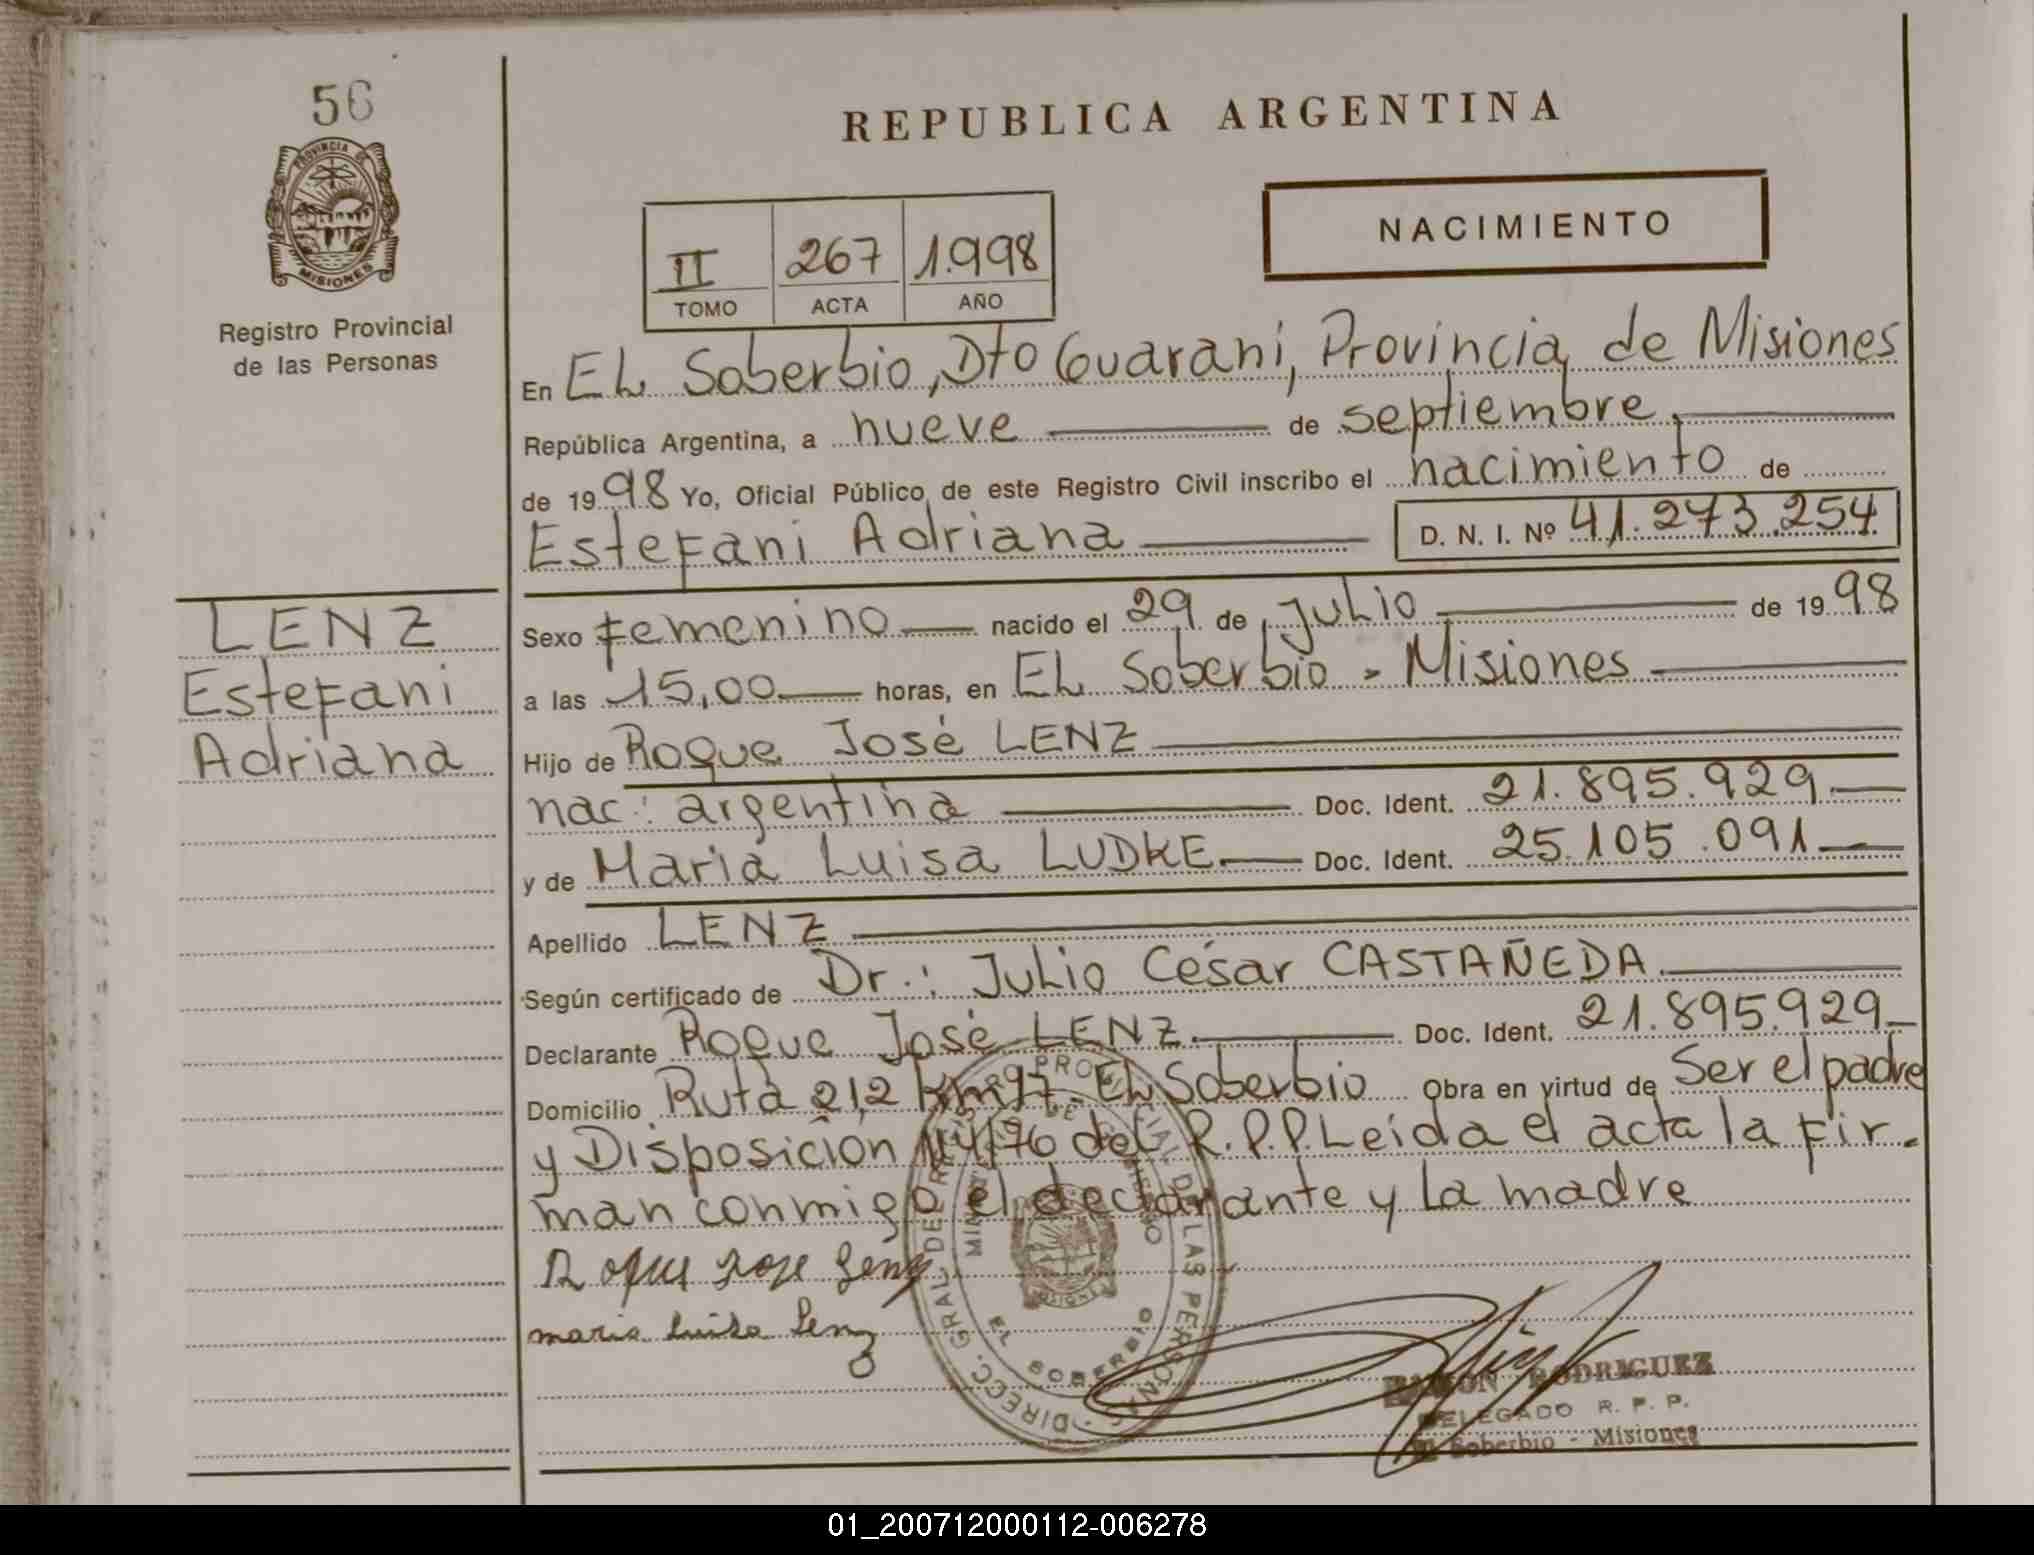 56
PROVINCIA DE
MISIONES
Registro Provincial
de las Personas
REPUBLICA ARGENTINA
NACIMIENTO
II 267 1.998
TOMO ACTA AÑO
En EL Soberbio, Dto Guarani, Provincia de Misiones
República Argentina, a nueve de septiembre
de 1998 Yo, Oficial Público de este Registro Civil inscribo el nacimiento de
Estefani Adriana D. N. I. Nº 41.273.254
LENZ
Estefani
Adriana
Sexo femenino nacido el 29 de Julio de 1998
a las 15,00 horas, en EL Soberbio - Misiones
Hijo de Roque José LENZ
nac: argentina Doc. Ident. 21.895.929
y de Maria Luisa LUDKE Doc. Ident. 25.105.091
Apellido LENZ
Según certificado de Dr.: Julio César CASTAÑEDA
Declarante Roque José LENZ Doc. Ident. 21.895.929
Domicilio Ruta 212 Km 97 - EL Soberbio Obra en virtud de Ser el padre
y Disposición 114/76 del R.P.P. Leída el acta la fir-
man conmigo el declarante y La madre
Roque Jose Lenz
maria Luisa Lenz
DIRECC. GRAL. DEL REGISTRO PROVINCIAL DE LAS PERSONAS
EL SOBERBIO
MISIONES
RAMON RODRIGUEZ
DELEGADO R. P. P.
El Soberbio - Misiones
01_200712000112-006278